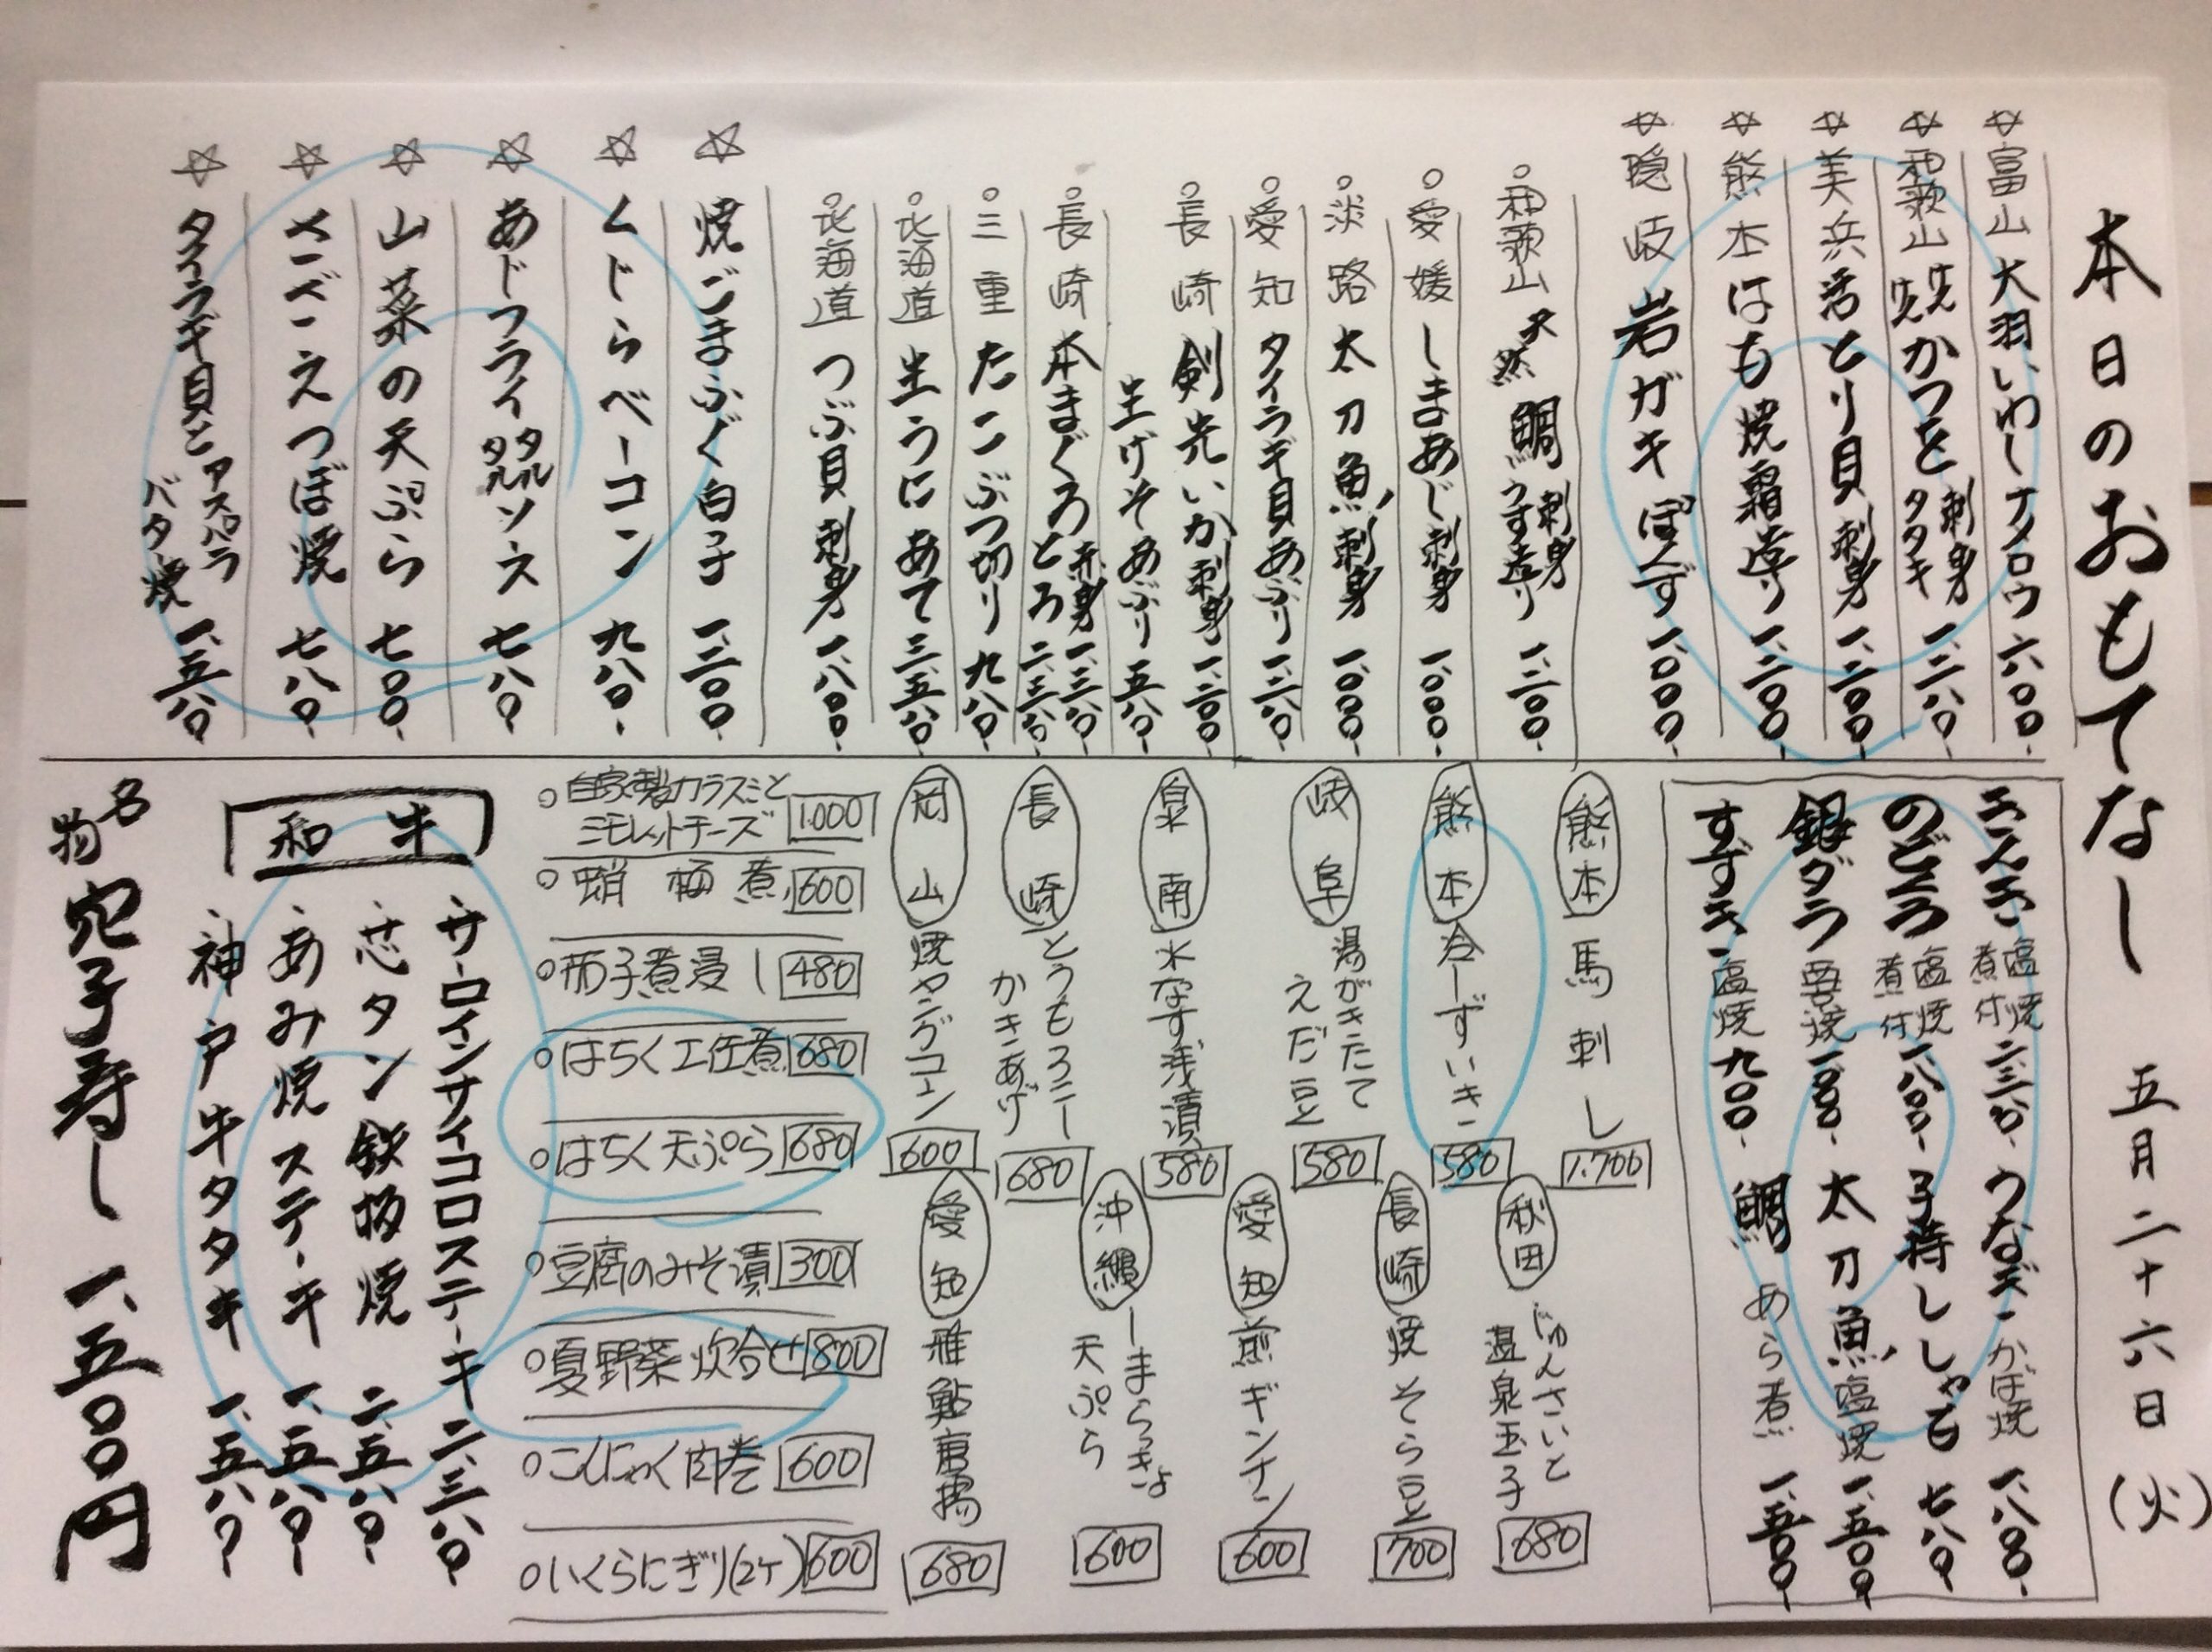 本日のおもてなし 五月二十六日(火)
☆富山 大羽いわし ナメロウ 六〇〇-
☆和歌山 かつを 刺身 タタキ
☆美浜 活とり貝 刺身 一、二〇〇-
☆熊本 はも焼霜造り 一、二〇〇-
☆隠岐 岩ガキぽんず 一、〇〇〇-
○和歌山 天然 鯛 刺身 うす造り 一、二〇〇-
○愛媛 しまあじ刺身 一、〇〇〇-
○淡路 太刀魚刺身 一、〇〇〇-
○愛知 タイラギ貝あぶり 一、二八〇-
○長崎 剣先いか刺身 一、二〇〇-
生げそあぶり 五八〇-
○長崎 本まぐろ 赤身 とろ
○三重 たこぶつ切り 九八〇-
○北海道 生うに あて 三、五八〇-
○北海道 つぶ貝刺身 一、八〇〇-
☆焼ごまふぐ白子 一、二〇〇-
☆くじらベーコン 九八〇-
☆あじフライ タルタルソース 七八〇-
☆山菜の天ぷら 七〇〇-
☆さざえつぼ焼 七八〇-
☆タイラギ貝とアスパラ バタ焼 一、五八〇-
きんき 塩焼 煮付
うなぎ かば焼 一、八〇〇-
のどぐろ 塩焼 煮付 一、八〇〇-
子持ししゃも 七八〇-
銀ダラ 西京焼
太刀魚 塩焼 一、五〇〇-
すずき 塩焼 九〇〇-
鯛 あら煮 一、五〇〇-
熊本 馬刺し 1.700
熊本 冷ーずいき 580
岐阜 湯がきたて えだ豆 580
泉南 水なす浅漬 580
長崎 とうもろこし かきあげ 680
岡山 焼ヤングコーン 600
秋田 じゅんさいと 温泉玉子 680
長崎 焼そら豆 700
愛知 煎ギンナン 600
沖縄 しまらっきょ 天ぷら 600
愛知 稚鮎唐揚 680
○自家製カラスミと ミモレットチーズ 1.000
○蛸 梅煮 600
○茄子煮浸し 480
○はちく土佐煮 680
○はちく天ぷら 680
○豆腐のみそ漬 300
○夏野菜炊合せ 800
○こんにゃく肉巻 600
○いくらにぎり(2ケ) 600
和牛
・サーロインサイコロステーキ 二、三八〇-
・芯タン鉄板焼 二、五八〇-
・あみ焼ステーキ 一、五八〇-
・神戸牛タタキ 一、五八〇-
名物 穴子寿し 一、五〇〇円